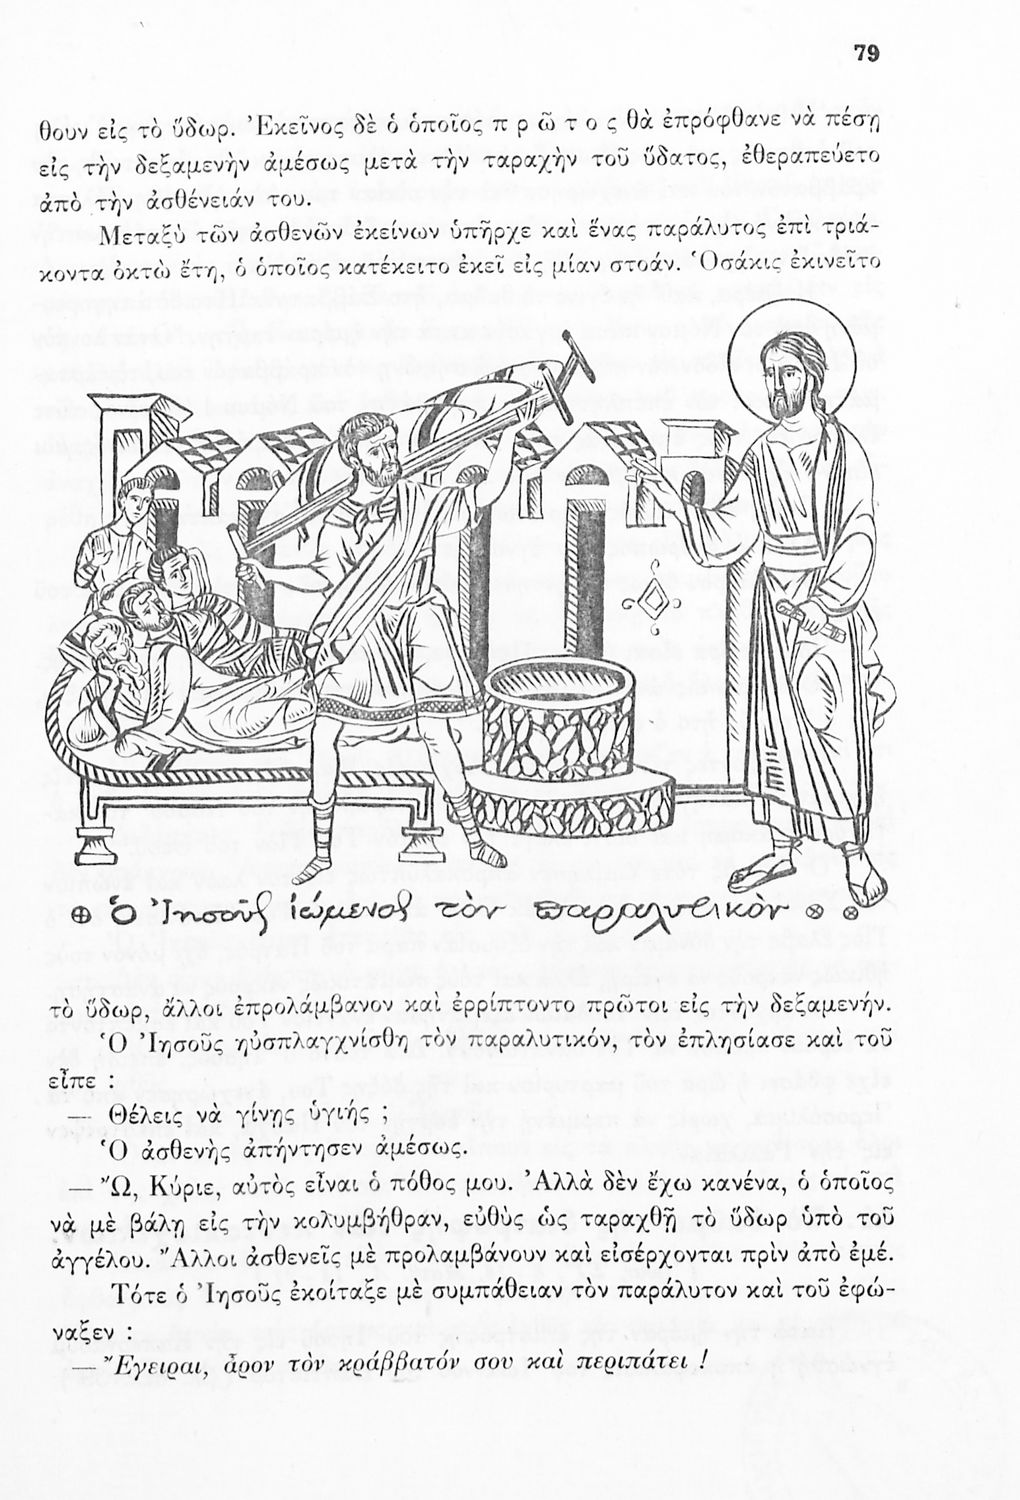 79
θουν εἰς τὸ ὕδωρ. Ἐκεῖνος δὲ ὁ ὁποῖος π ρ ῶ τ ο ς θὰ ἐπρόφθανε νὰ πέσῃ
εἰς τὴν δεξαμενὴν ἀμέσως μετὰ τὴν ταραχὴν τοῦ ὕδατος, ἐθεραπεύετο
ἀπὸ τὴν ἀσθένειάν του.
Μεταξὺ τῶν ἀσθενῶν ἐκείνων ὑπῆρχε καὶ ἕνας παράλυτος ἐπὶ τριά-
κοντα ὀκτὼ ἔτη, ὁ ὁποῖος κατέκειτο ἐκεῖ εἰς μίαν στοάν. Ὁσάκις ἐκινεῖτο
Ὁ Ἰησοῦς ἰώμενος τὸν παραλυτικὸν
τὸ ὕδωρ, ἄλλοι ἐπρολάμβανον καὶ ἐρρίπτοντο πρῶτοι εἰς τὴν δεξαμενήν.
Ὁ Ἰησοῦς ηὐσπλαγχνίσθη τὸν παραλυτικόν, τὸν ἐπλησίασε καὶ τοῦ
εἶπε :
— Θέλεις νὰ γίνῃς ὑγιὴς ;
Ὁ ἀσθενὴς ἀπήντησεν ἀμέσως.
— Ὤ, Κύριε, αὐτὸς εἶναι ὁ πόθος μου. Ἀλλὰ δὲν ἔχω κανένα, ὁ ὁποῖος
νὰ μὲ βάλῃ εἰς τὴν κολυμβήθραν, εὐθὺς ὡς ταραχθῇ τὸ ὕδωρ ὑπὸ τοῦ
ἀγγέλου. Ἄλλοι ἀσθενεῖς μὲ προλαμβάνουν καὶ εἰσέρχονται πρὶν ἀπὸ ἐμέ.
Τότε ὁ Ἰησοῦς ἐκοίταξε μὲ συμπάθειαν τὸν παράλυτον καὶ τοῦ ἐφώ-
ναξεν :
— Ἔγειραι, ἆρον τὸν κράββατόν σου καὶ περιπάτει !